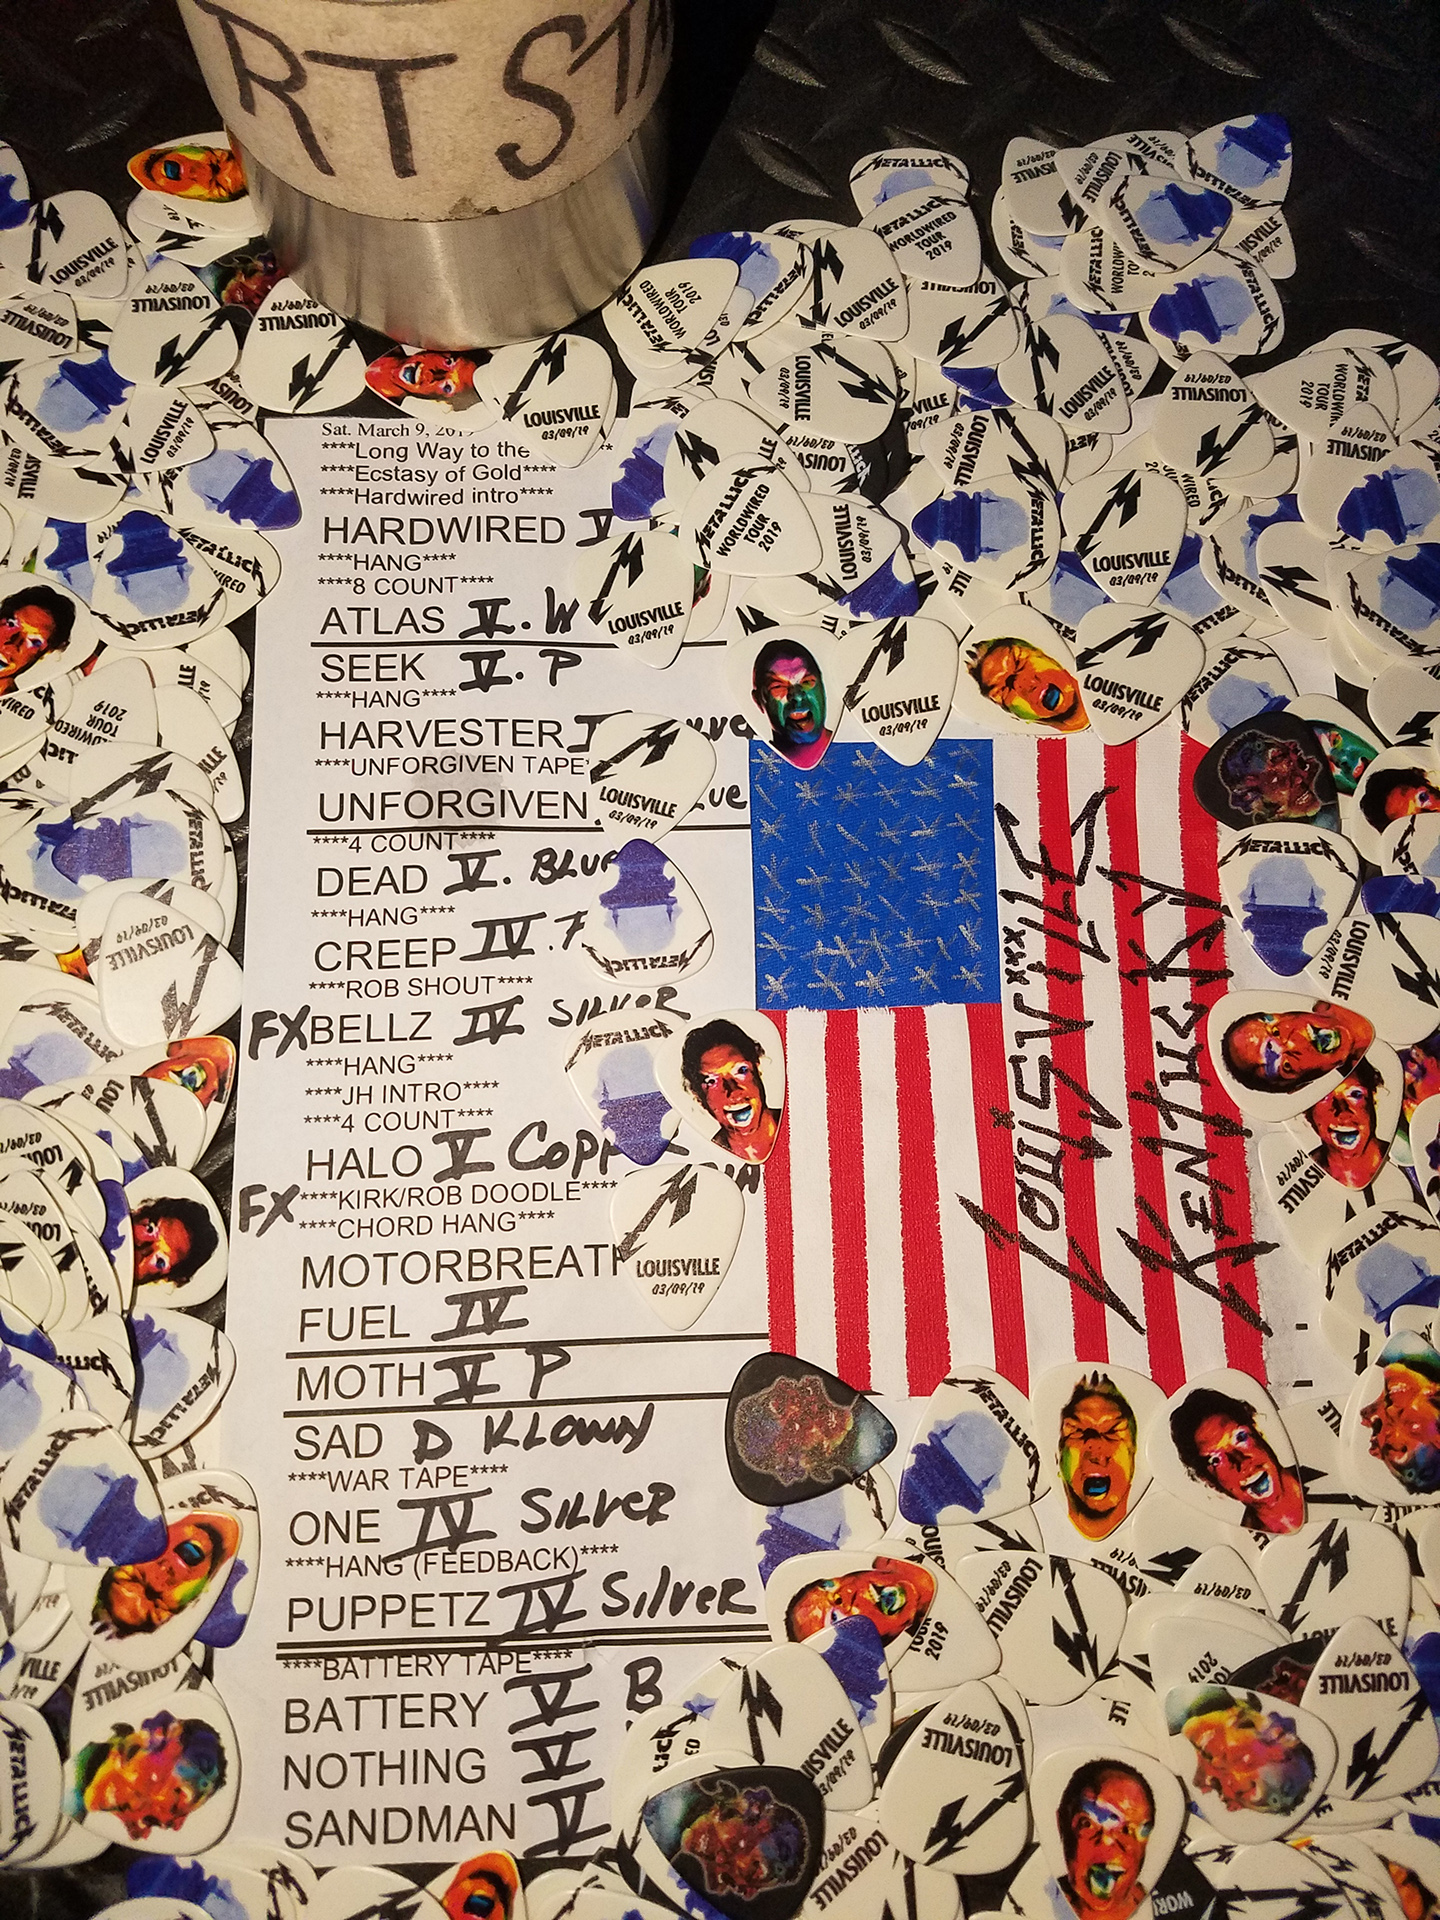 RT STA
Sat. March 9, 2019
****Long Way to the
****Ecstasy of Gold****
****Hardwired intro****
HARDWIRED V
****HANG****
****8 COUNT****
ATLAS V. W
SEEK V. P
****HANG****
HARVESTER
****UNFORGIVEN TAPE
UNFORGIVEN
****4 COUNT****
DEAD V. BLUE
****HANG****
CREEP IV. F
****ROB SHOUT****
FX BELLZ IV SILVER
****HANG****
****JH INTRO****
****4 COUNT****
HALO V COPP
FX ****KIRK/ROB DOODLE****
****CHORD HANG****
MOTORBREATH
FUEL IV
MOTH V P
SAD D KLOWN
****WAR TAPE****
ONE IV SILVER
****HANG (FEEDBACK)****
PUPPETZ IV SILVER
****BATTERY TAPE****
BATTERY V B
NOTHING V
SANDMAN V
LOUISVILLE
KENTUCKY
METALLICA
WORLDWIRED
TOUR
2019
M
LOUISVILLE
03/09/19